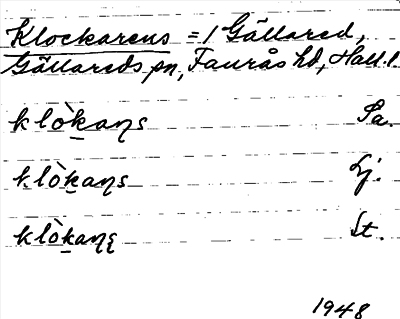 Klockarens = 1 Gällared,
Gällareds sn, Faurås hd, Hall. l.
klòkaɳs Sa.
klòkaɳs Lj.
klòkaɳs St.
1948